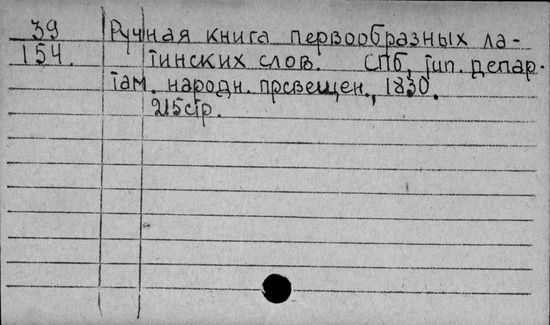 39 Ручная книга первообразных ла-
154. тинских слов. СПб, тип. депар.
там. народн. просвещен., 1830.
215стр.